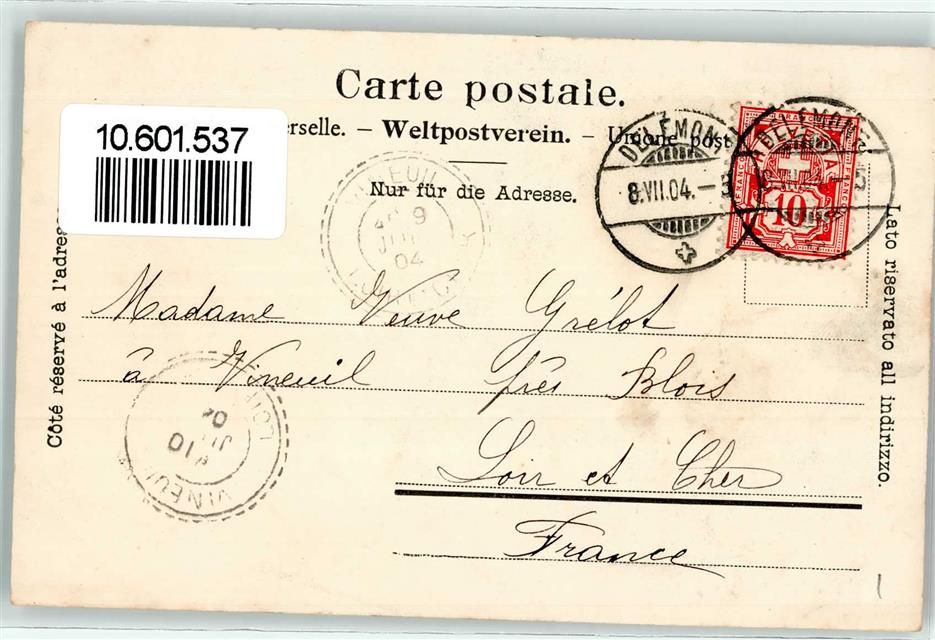 Carte postale.
10.601.537
erselle. — Weltpostverein. — Unione post
Nur für die Adresse.
DELÉMONT
8.VII.04.—
DELÉMONT
5
FRANCO
10
VINEUIL
9
JUIL
04
Madame Veuve Grélot
à Vineuil près Blois
Loir et Cher
France
VINEUIL
10
04
Côté réservé à l'adres
Lato riservato all indirizzo.